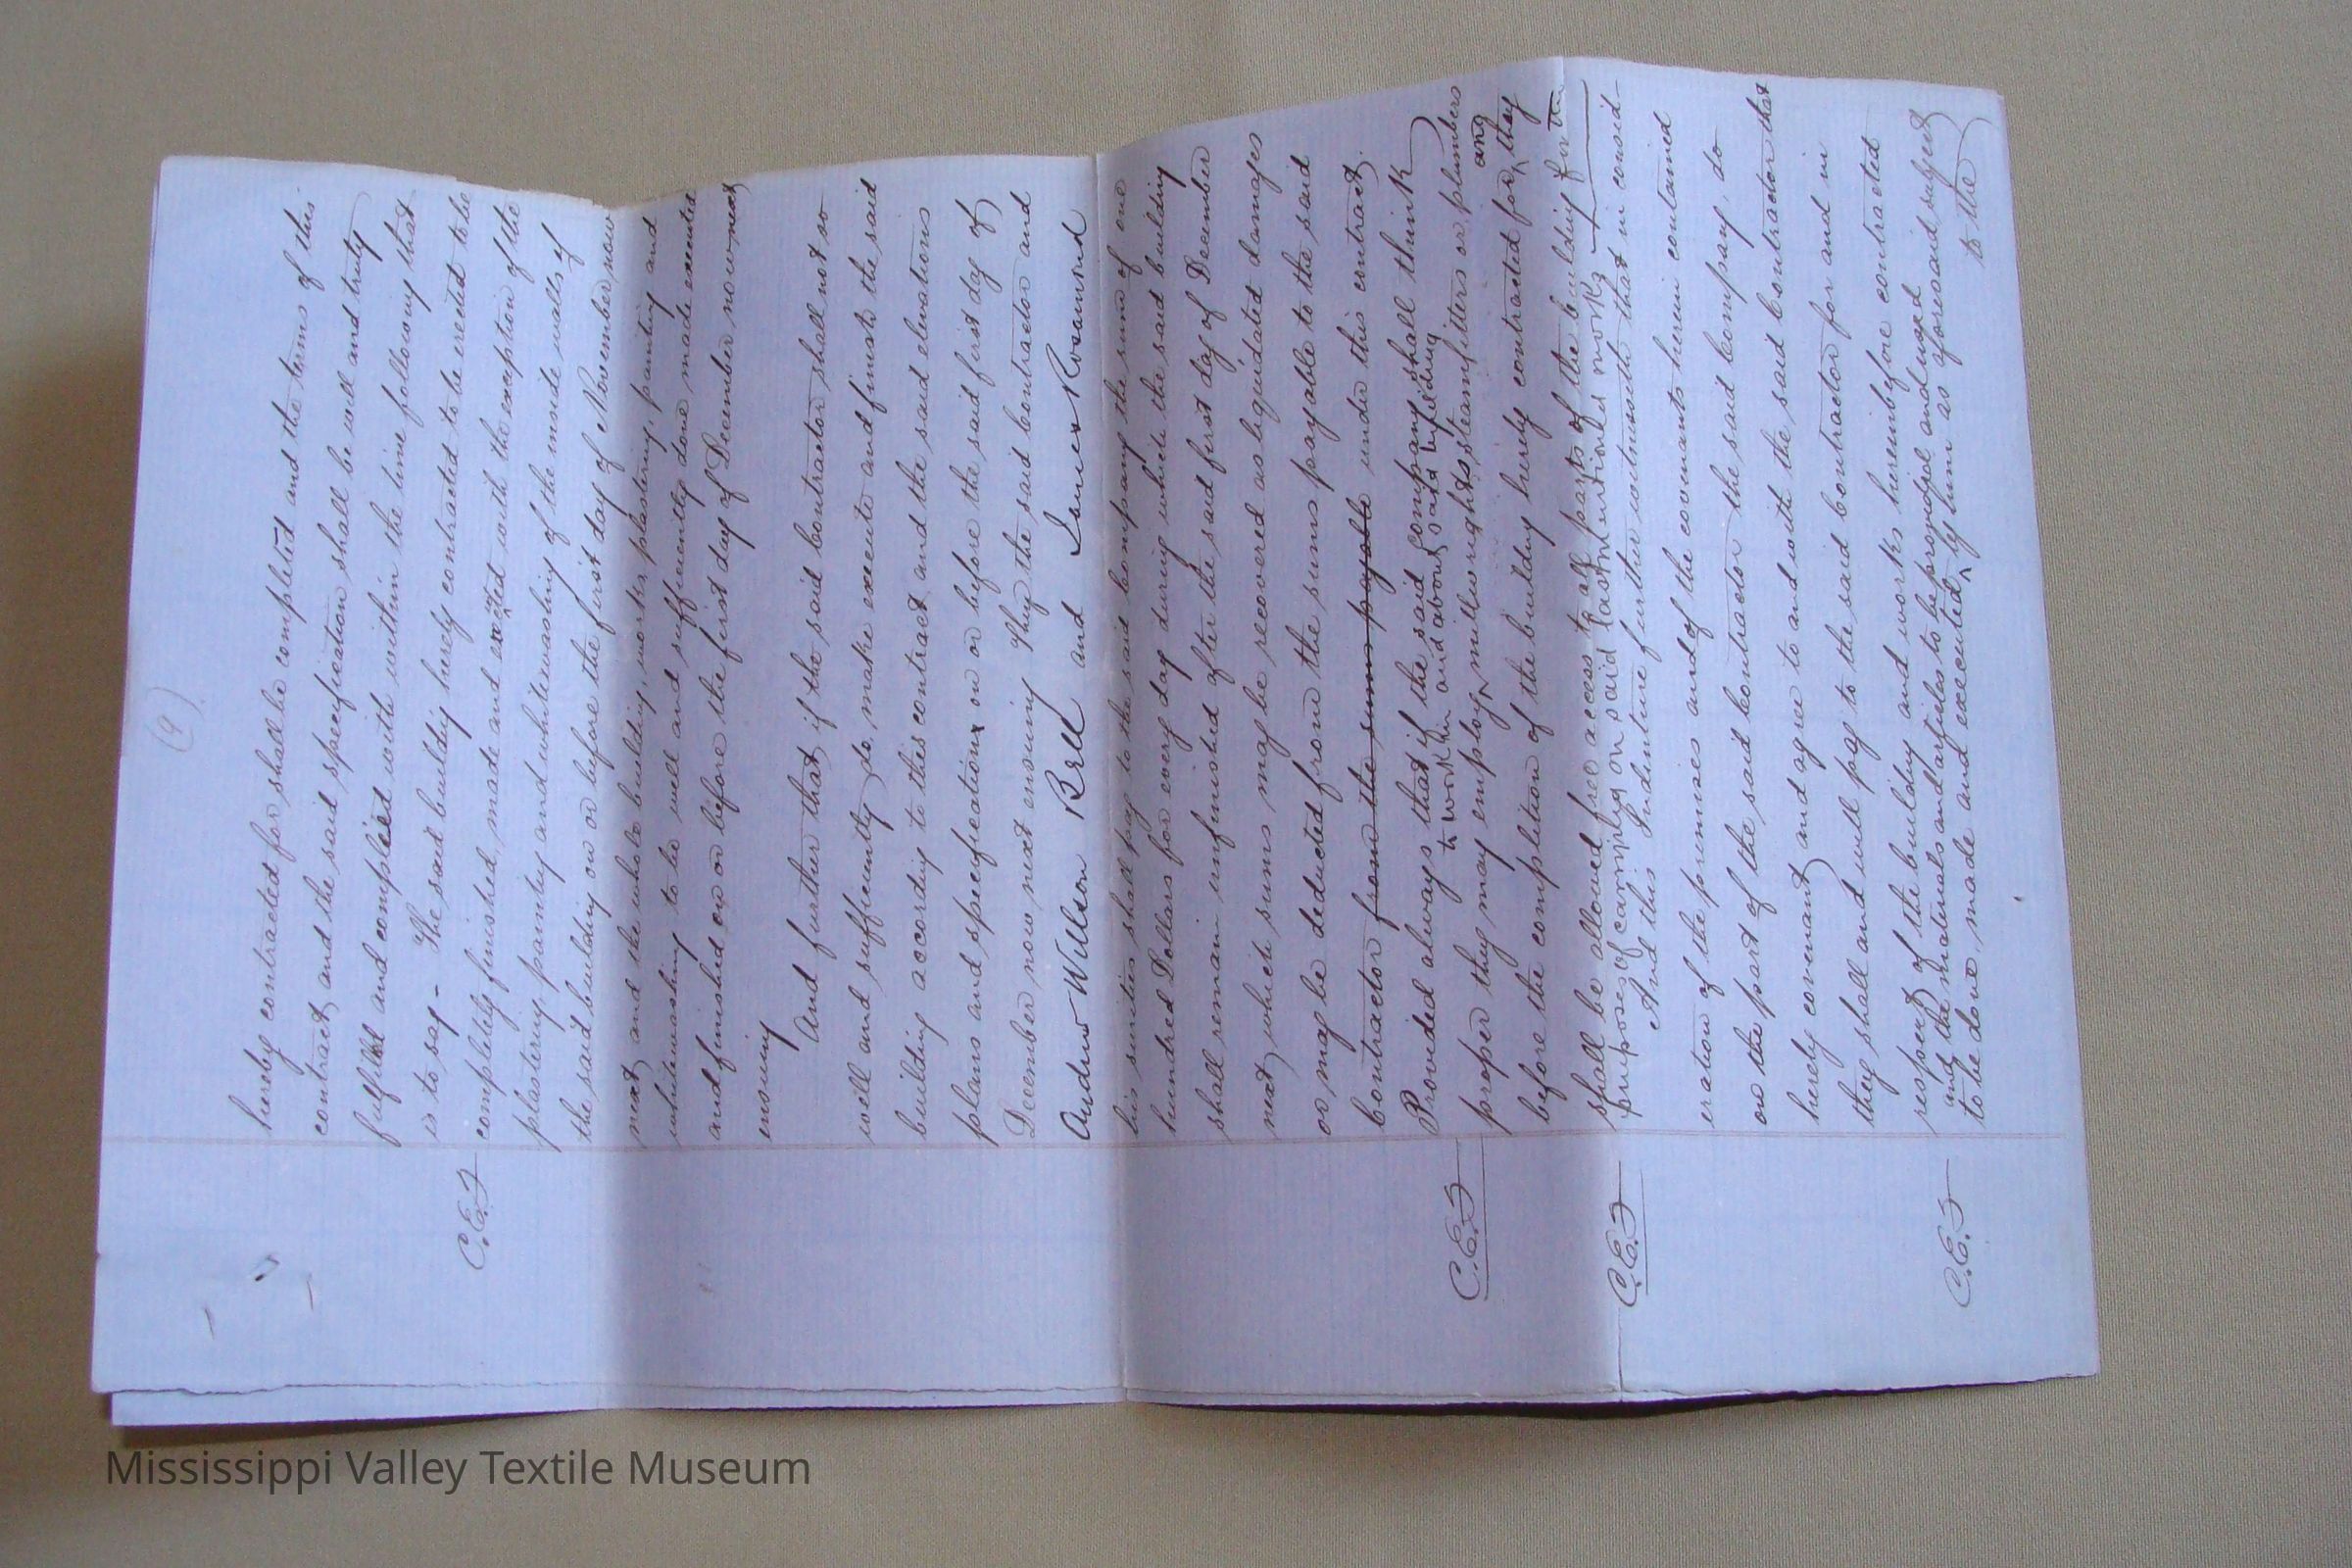 (9).
hereby contracted for shall be completed and the terms of this
contract and the said specification shall be well and truly
fulfilled and complied with within the time following that
is to say - The said building hereby contracted to be erected to be
C.E.J
completely finished, made and executed with the exception of the
plastering, painting and whitewashing of the inside walls of
the said building on or before the first day of November now
next and the whole building, works, plastering, painting and
whitewashing to be well and sufficiently done made executed
and finished on or before the first day of December now next
ensuing
And further that if the said Contractor shall not so
well and sufficiently do, make execute and finish the said
building according to this contract and the said elevations
plans and specifications on or before the said first day of
December now next ensuing They the said Contractor and
Andrew Willson Bell and James Rosamond
his sureties shall pay to the said Company the sum of one
hundred Dollars for every day during which the said building
shall remain unfinished after the said first day of December
next which sums may be recovered as liquidated damages
or may be deducted from the sums payable to the said
Contractor from the sums payable under this contract.
Provided always that if the said Company shall think
to work in and about said building
C.E.J
proper they may employ millwrights steamfitters or plumbers
and
before the completion of the building hereby contracted for they
shall be allowed free access to all parts of the building for the
purposes of carrying on said last mentioned works
C.E.J
And this Indenture further witnesseth that in consid-
eration of the premises and of the covenants herein contained
on the part of the said Contractor the said Company, do
hereby covenant and agree to and with the said Contractor that
they shall and will pay to the said Contractor for and in
respect of the building and works hereinbefore contracted
and the materials and articles to be provided and used
C.E.J
to be done, made and executed by him as aforesaid subject
to the
Mississippi Valley Textile Museum